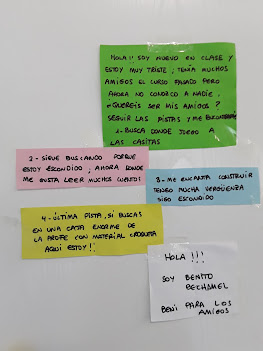 HOLA!! SOY NUEVO EN CLASE Y
ESTOY MUY TRISTE, TENÍA MUCHOS
AMIGOS EL CURSO PASADO PERO
AHORA NO CONOZCO A NADIE,
¿QUEREIS SER MIS AMIGOS?
SEGUIR LAS PISTAS Y ME ENCONTRAREIS
1- BUSCA DONDE JUEGO A
LAS CASITAS
2- SIGUE BUSCANDO PORQUE
ESTOY ESCONDIDO, AHORA DONDE
ME GUSTA LEER MUCHOS CUENTOS
3- ME ENCANTA CONSTRUIR
TENGO MUCHA VERGÜENZA
SIGO ESCONDIDO
4- ÚLTIMA PISTA, SI BUSCAS
EN UNA CAJA ENORME DE
LA PROFE CON MATERIAL CROQUETA
AQUÍ ESTOY!!
HOLA!!!
SOY BENITO
BECHAMEL
BENI PARA LOS
AMIGOS